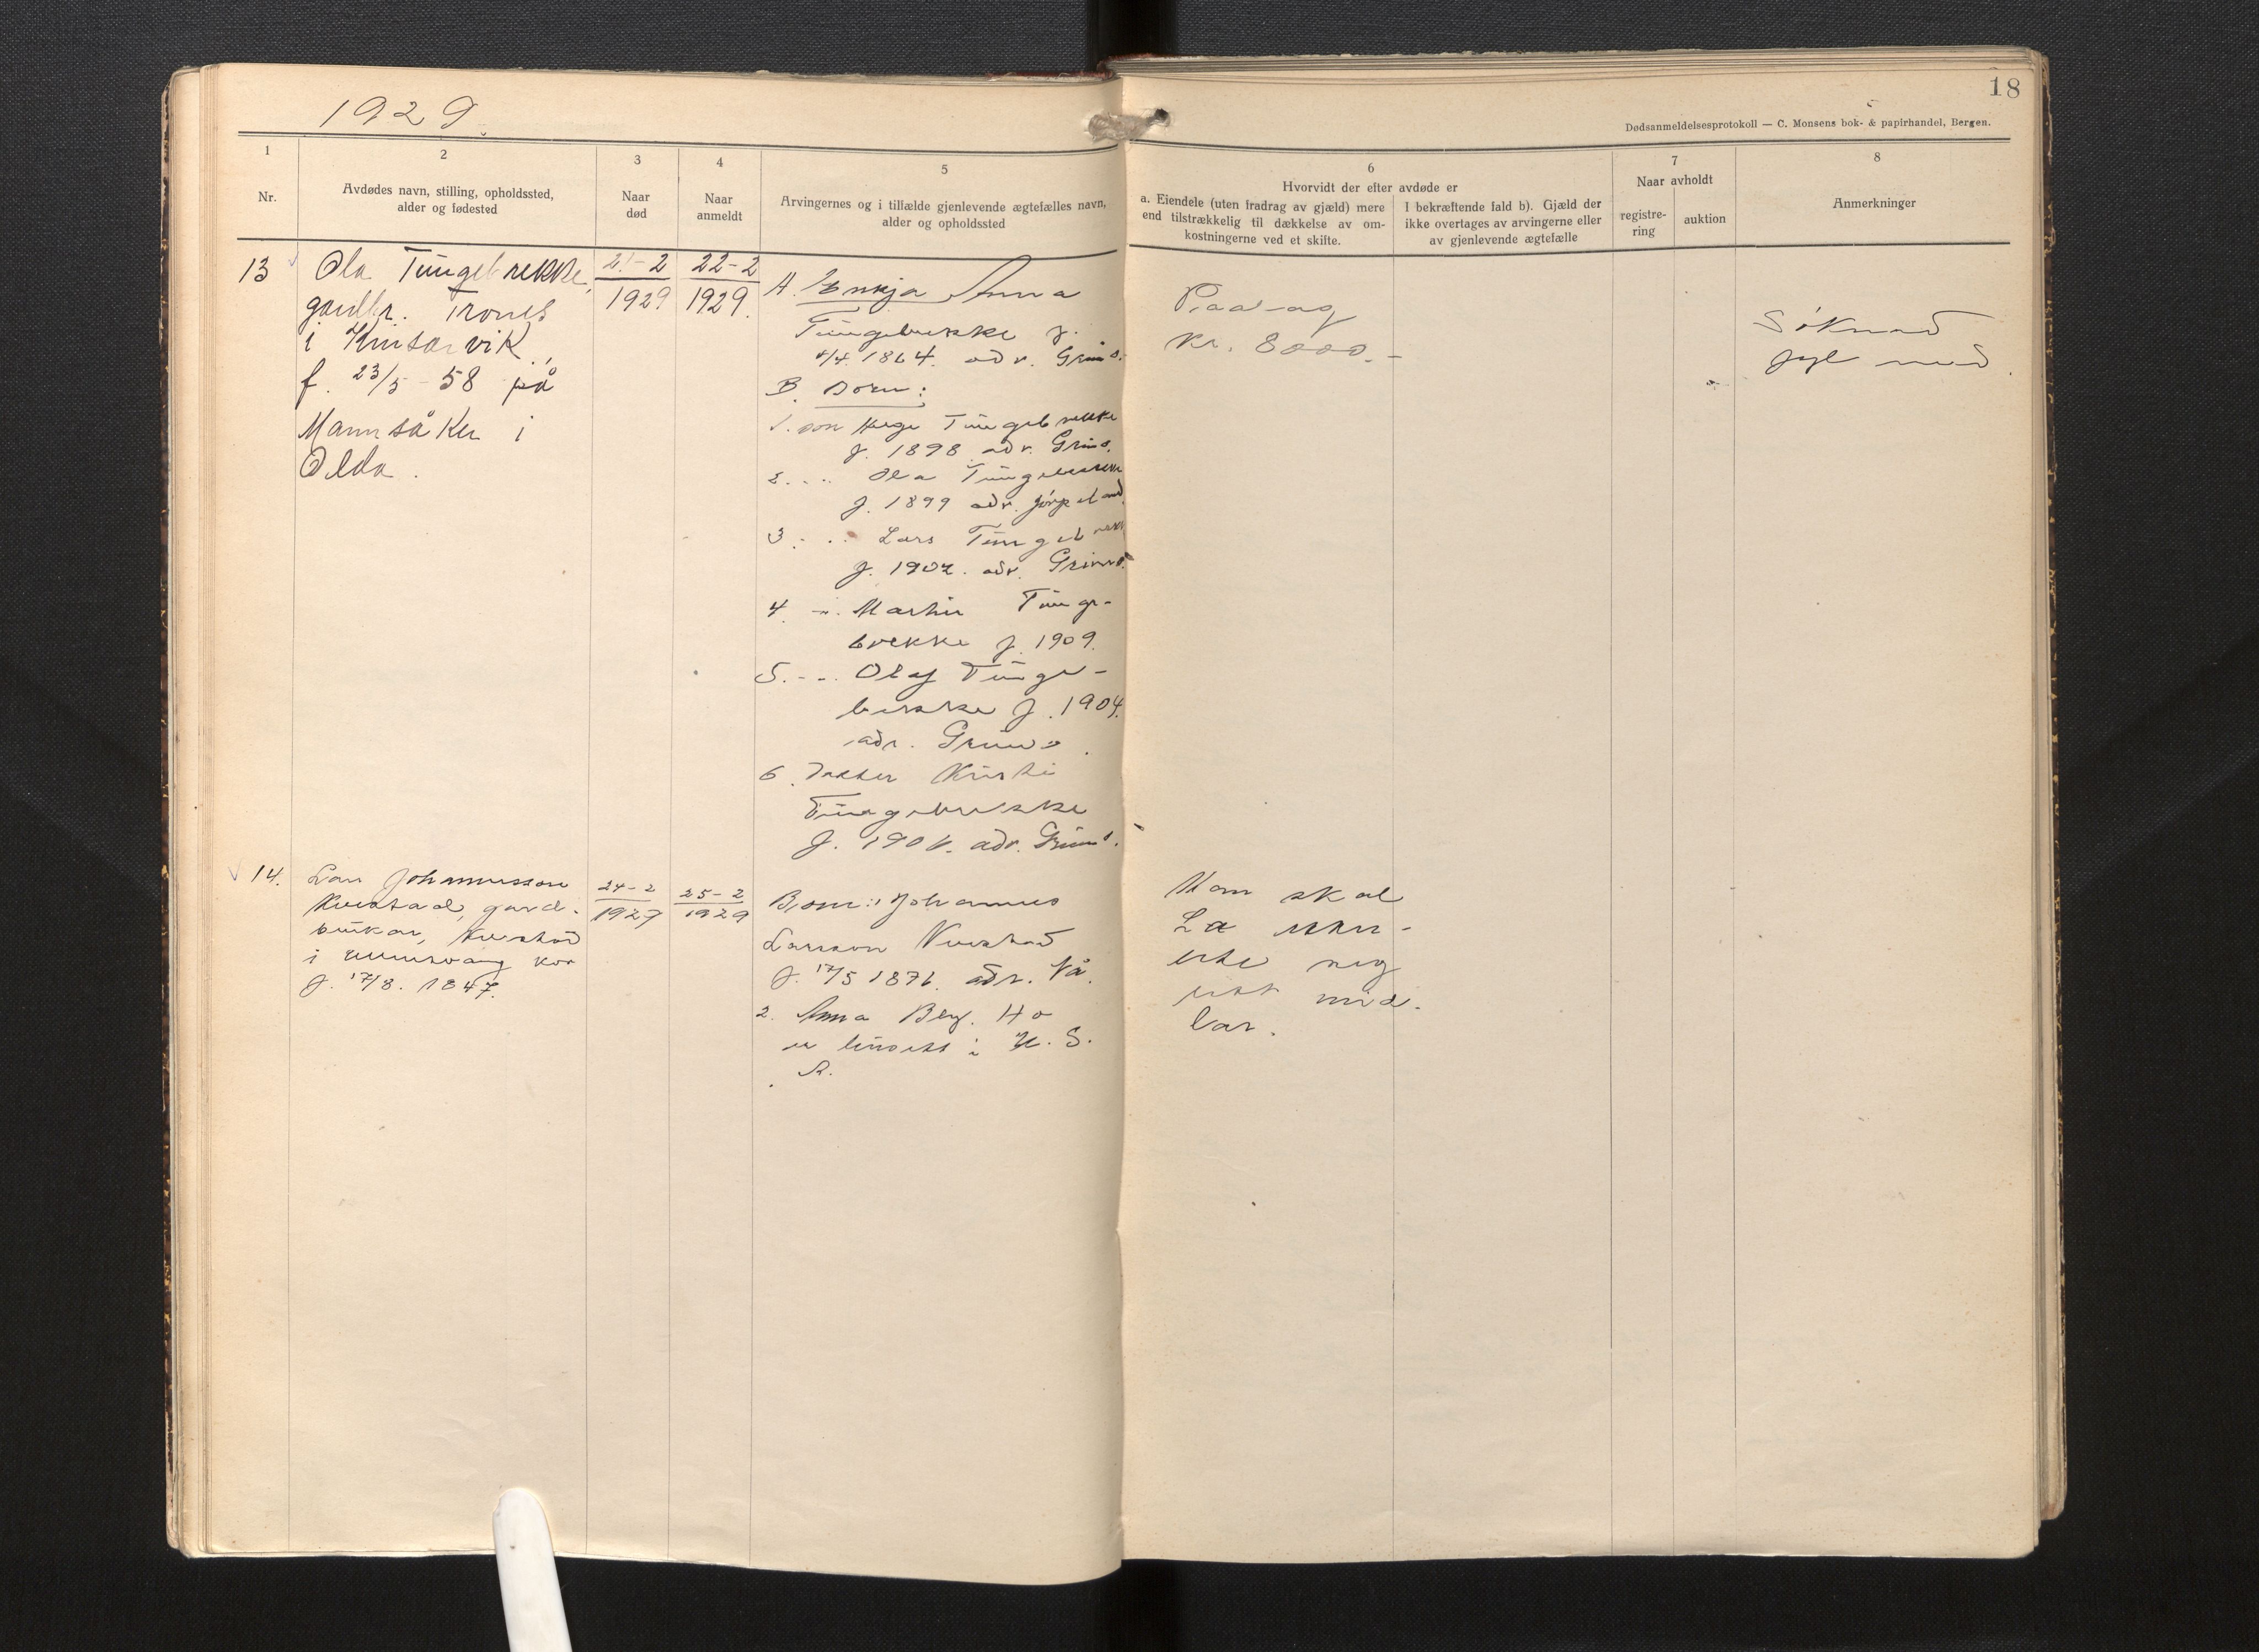 1929.
18
Dødsanmeldelsesprotokoll — C. Monsens bok- & papirhandel, Bergen.
1
Nr.
2
Avdødes navn, stilling, opholdssted,
alder og fødested
3
Naar
død
4
Naar
anmeldt
5
Arvingernes og i tilfælde gjenlevende ægtefælles navn,
alder og opholdssted
6
Hvorvidt der efter avdøde er
a. Eiendele (uten fradrag av gjæld) mere
end tilstrækkelig til dækkelse av om-
kostningerne ved et skifte.
I bekræftende fald b). Gjæld der
ikke overtages av arvingerne eller
av gjenlevende ægtefælle
7
Naar avholdt
registre-
ring
auktion
8
Anmerkninger
13
Ola Tungebrekke,
gardbr. Trones
i Kinsarvik,
f. 23/5-58 på
Mannsåker i
Odda.
21-2
1929
22-2
1929.
A. Enkja Anna
Tungebrekke f.
1864. adr. Grimo.
B. Born:
1. son Helge Tungebrekke
f. 1898 adr. Grimo.
2. - .. Ola Tungebrekke
f. 1899 adr. Jørpeland
3. - .. Lars Tungebrekke
f. 1902. adr. Grimo.
4. - .. Martin Tunge-
brekke f. 1909.
5. - .. Olaf Tunge-
brekke f. 1904.
adr. Grimo.
6. Dotter Kristi
Tungebrekke
f. adr. Grimo.
Kr. 8000.-
Søknad
fylgje med.
14.
Lars Johannesson
Kvestad, gard-
brukar, Kvestad
i Ullensvang
f. 17/8. 1847.
24-2
1929
25-2
1929
Born: 1 Johannes
Larsson Kvestad
f. 17/5 1876. adr. Nå.
2. Anna Berg. Ho
er busett i U. S.
A.
skal
La
seg
mid-
lar.